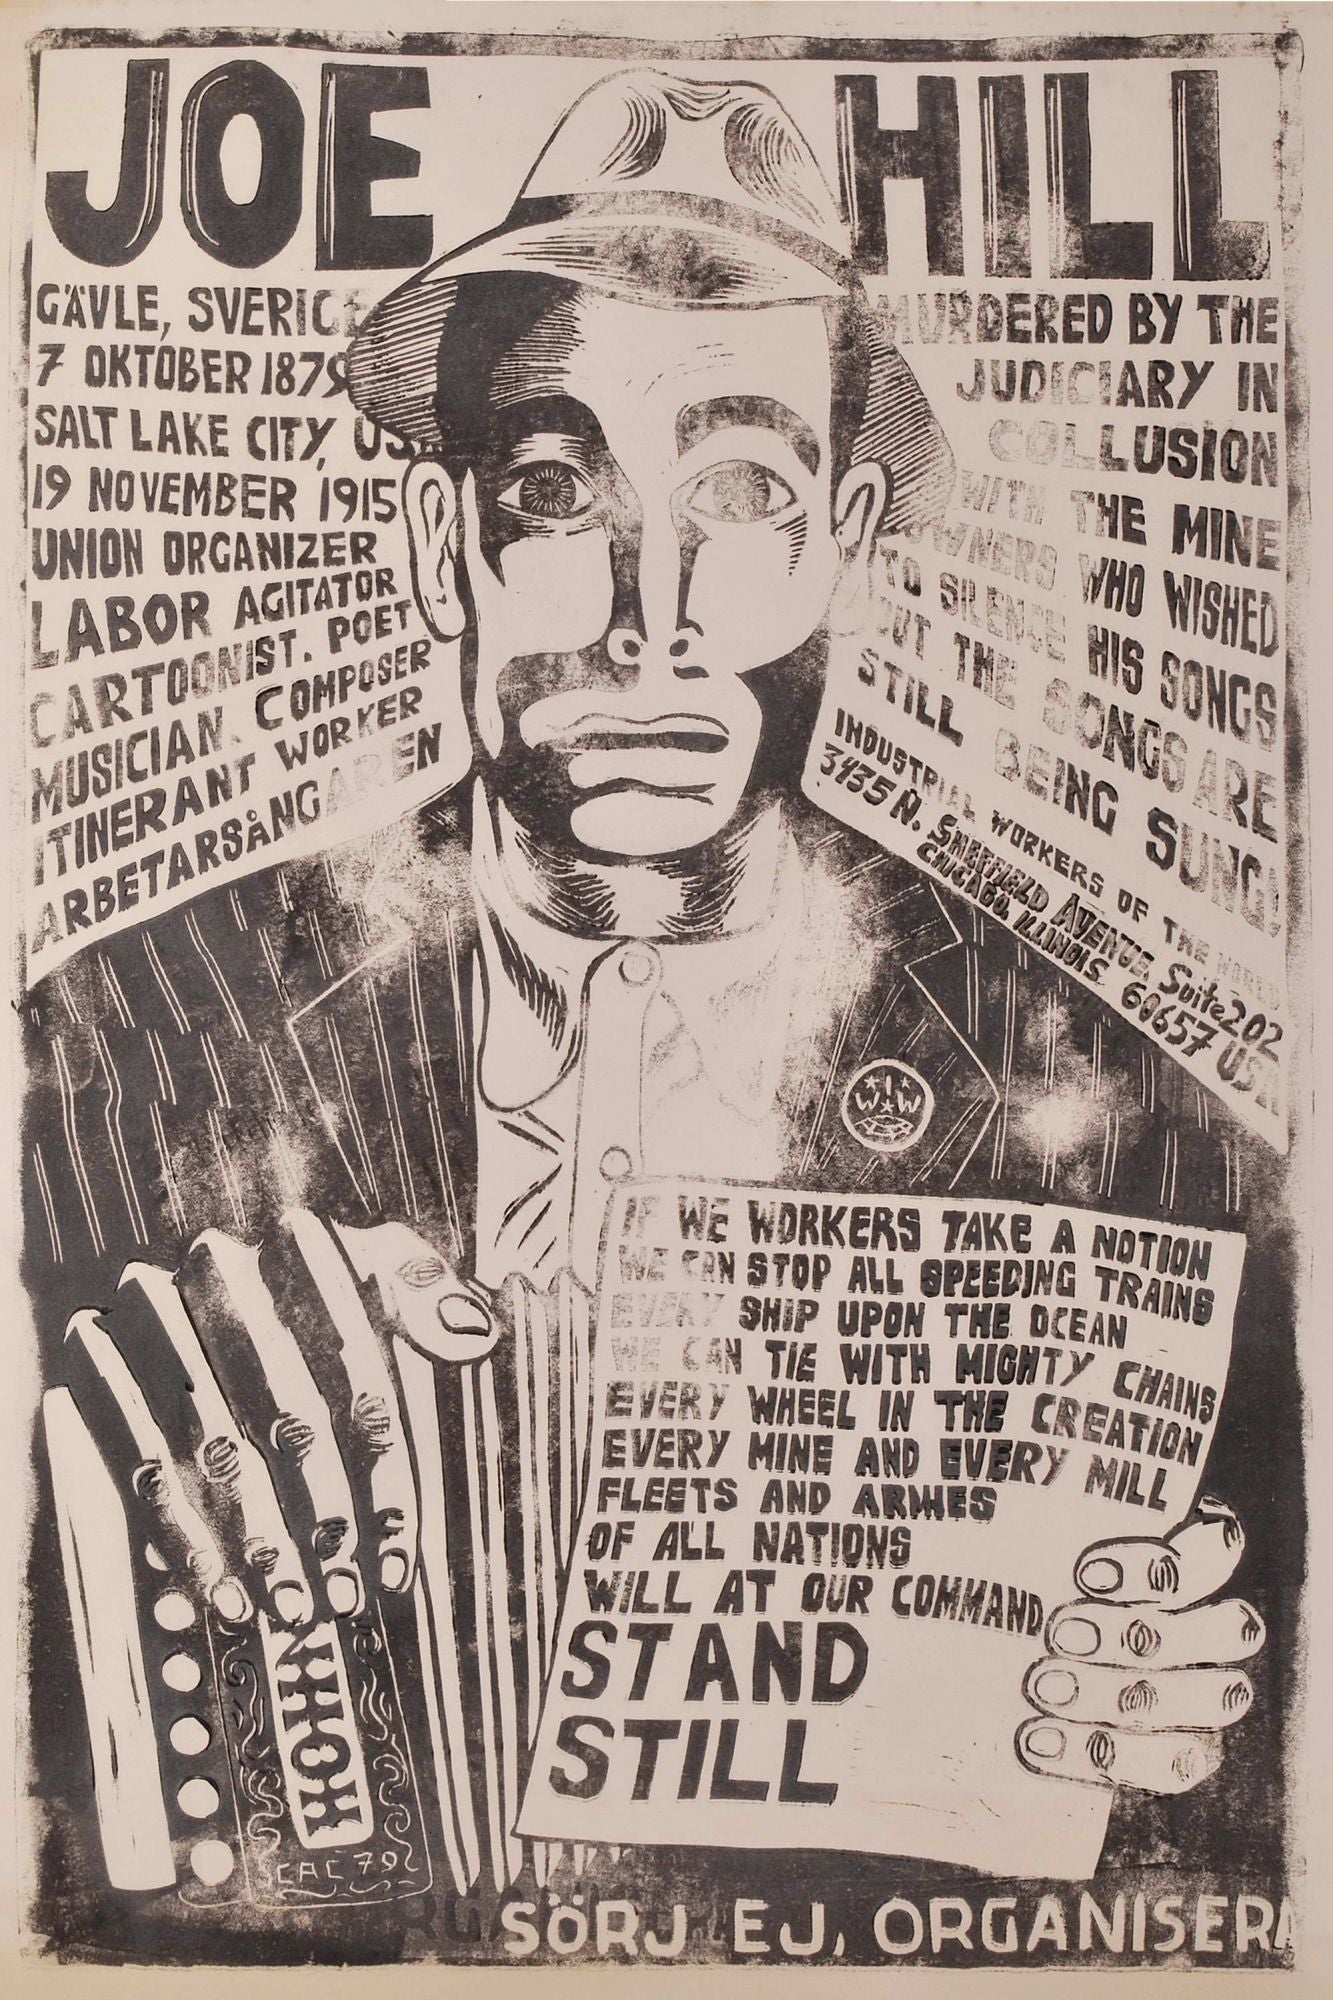 JOE HILL
GÄVLE, SVERIGE
7 OKTOBER 1879
SALT LAKE CITY, USA
19 NOVEMBER 1915
UNION ORGANIZER
LABOR AGITATOR
CARTOONIST. POET
MUSICIAN. COMPOSER
ITINERANT WORKER
ARBETARSÅNGAREN
MURDERED BY THE
JUDICIARY IN
COLLUSION
WITH THE MINE
OWNERS WHO WISHED
TO SILENCE HIS SONGS
BUT THE SONGS ARE
STILL BEING SUNG!
INDUSTRIAL WORKERS OF THE WORLD
3435 N. SHEFFIELD AVENUE, Suite 202
CHICAGO, ILLINOIS 60657 USA
IWW
IF WE WORKERS TAKE A NOTION
WE CAN STOP ALL SPEEDING TRAINS
EVERY SHIP UPON THE OCEAN
WE CAN TIE WITH MIGHTY CHAINS
EVERY WHEEL IN THE CREATION
EVERY MINE AND EVERY MILL
FLEETS AND ARMIES
OF ALL NATIONS
WILL AT OUR COMMAND
STAND
STILL
HOHNER
CAC 79
SÖRJ EJ, ORGANISERA